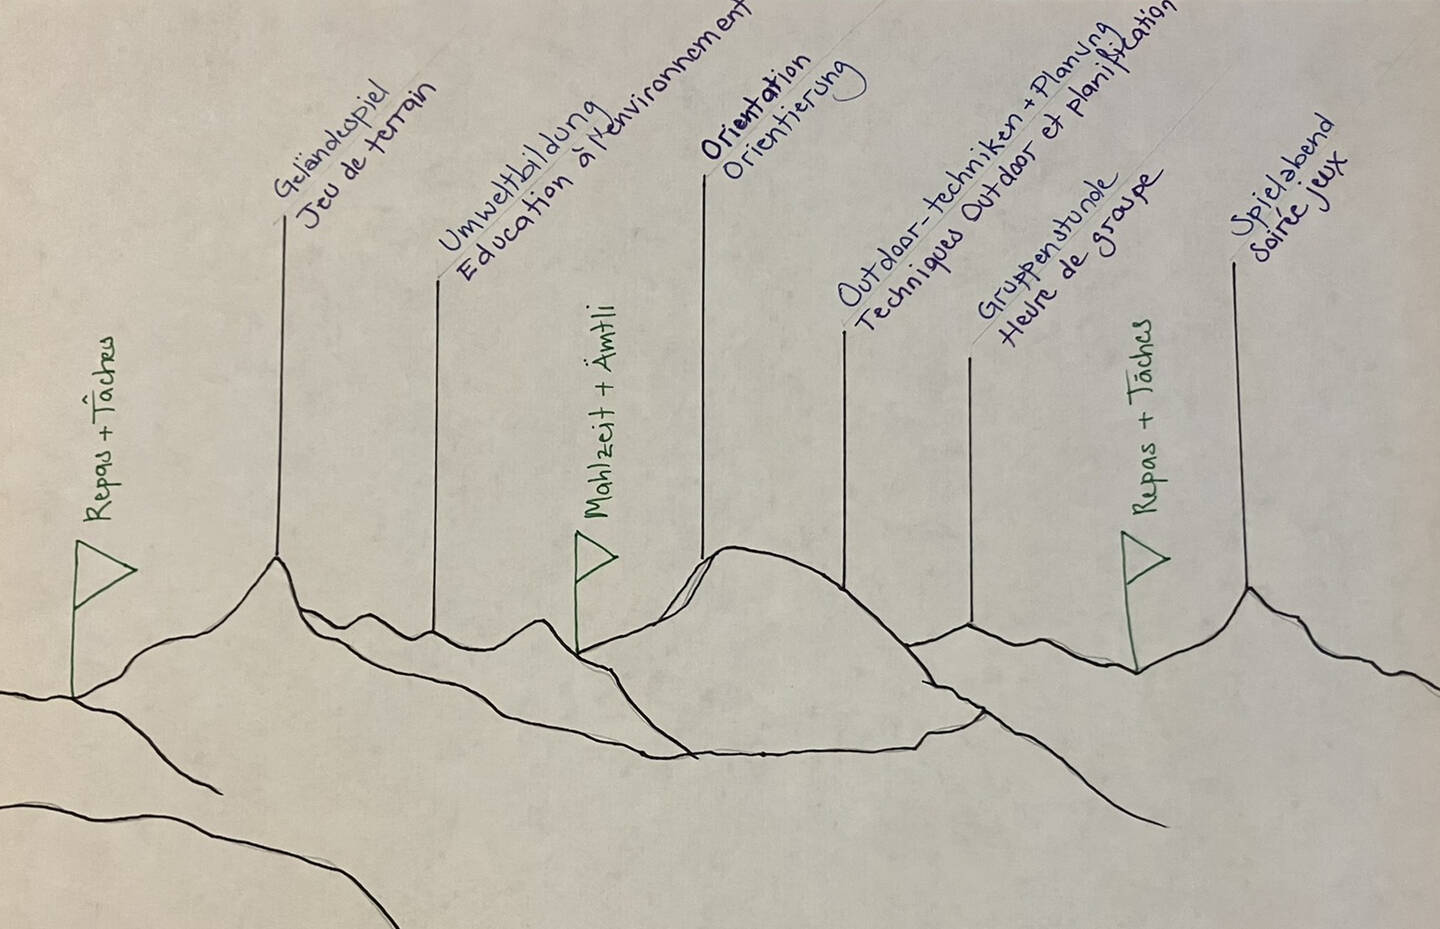 Repas + Tâches
Geländespiel
Jeu de terrain
Umweltbildung
Education à l'environnement
Mahlzeit + Ämtli
Orientation
Orientierung
Outdoor-techniken + Planung
Techniques Outdoor et planification
Gruppenstunde
Heure de groupe
Repas + Tâches
Spielabend
Soirée jeux